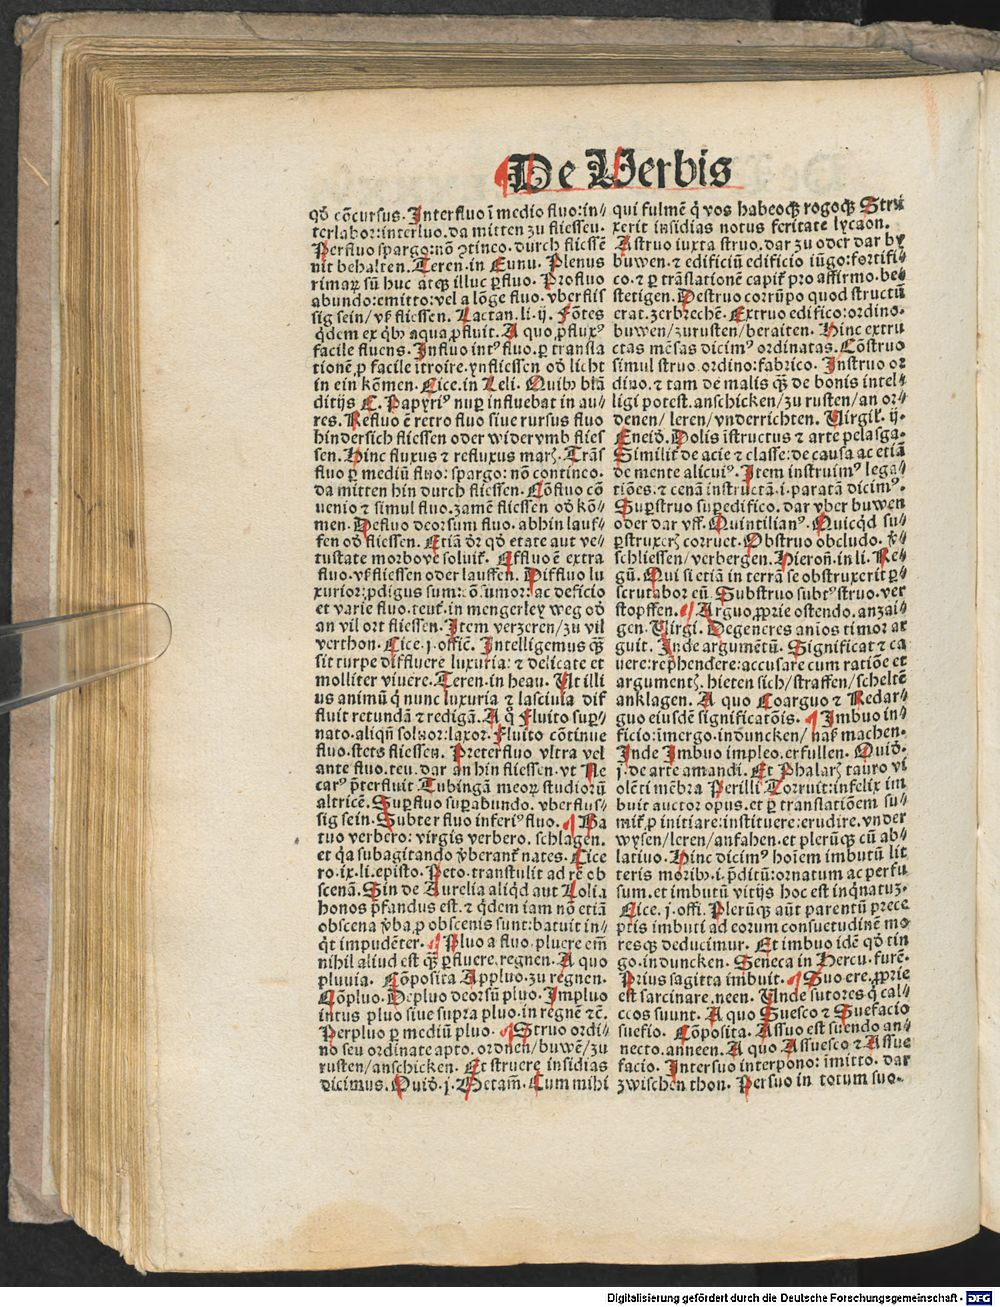 De Verbis
qđ cōcursus. Interfluo ī medio fluo:in⸗
terlabor:interluo. da mitten zu fliessen.
Perfluo spargo:nō ꝯtineo. durch fliessē
nit behalten. Teren. in Eunu. Plenus
rimaꝝ sū huc atqꝫ illuc ꝑfluo. Profluo
abundo:emitto: vel a lōge fluo. vberflis
sig sein/vß fliessen. Lactan. li. ij. Fōtes
q̇dem ex qͥbꝰ aqua ꝓfluit. A quo ꝓfluxꝰ
facile fluens. Influo intꝰ fluo. ꝑ transla
tionē ꝓ facile ītroire. ynfliessen ođ licht
in ein kōmen. Cice. in Leli. Quibꝰ blā
ditijs C. Papyriꝰ nuꝑ influebat in au⸗
res. Refluo ē retro fluo siue rursus fluo
hindersich fliessen oder widerumb flies
sen. Hinc fluxus ⁊ refluxus marꝭ. Trāſ
fluo ꝑ mediū fluo: spargo: nō contineo.
da mitten hin durch fliessen. Cōfluo cō
uenio ⁊ simul fluo. zamē fliessen ođ kō⸗
men. Defluo deorsum fluo. abhin lauf⸗
fen ođ fliessen. Etiā đr qđ etate aut ve⸗
tustate morbove soluiť. Effluo ē extra
fluo. vß fliessen oder lauffen. Diffluo lu
xurior: ꝓdigus sum: cōsumor: ac deficio
et varie fluo. teuť. in mengerley weg ođ
an vil ort fliessen. Item verzeren/zu vil
verthon. Cice. j. offic̄. Intelligemus qꝫ̄
sit turpe diffluere luxuria: ⁊ delicate et
molliter viuere. Teren. in heau. Vt illi
us animū q̇ nunc luxuria ⁊ lasciuia dif
fluit retundā ⁊ redigā. A q̊ Fluito suꝑ⸗
nato. aliqn̄ soluor: laxor. Fluito cōtinue
fluo. stets fliessen. Preterfluo vltra vel
ante fluo. teu. dar an hin fliessen. vt Ne
carꝰ p̄terfluit Tubingā meoꝝ studioꝝ
altricē. Suꝑfluo suꝑabundo. vberflus⸗
sig sein. Subterfluo inferiꝰ fluo. ¶ Ba
tuo verbero: virgis verbero. schlagen.
et q̇a subagitando v̇beranť nates. Cice
ro. ix. li. episto. Peto. transtulit ad rē ob
scenā. Sin de Aurelia aliqđ aut Lolia
honos p̄fandus est. ⁊ q̇dem iam nō etiā
obscena v̇ba ꝓ obscenis sunt: batuit in⸗
q̇t impudēter. ¶ Pluo a fluo. pluere em̄
nihil aliud est qꝫ̄ ꝑfluere. regnen. A quo
pluuia. Cōposita Appluo. zu regnen.
Cōpluo. Depluo deorsū pluo. Impluo
intus pluo siue supra pluo. in regnē ⁊c̄.
Perpluo ꝑ mediū pluo. ¶ Struo ordi⸗
no seu ordinate apto. ordnen/buwē/zu
rusten/anschicken. Et struere insidias
dicimus. Ouiđ. j. Metam̄. Cum mihi
qui fulmē q̇ vos habeoqꝫ rogoqꝫ Stru
xerit insidias notus feritate lycaon.
Astruo iuxta struo. dar zu oder dar by
buwen. ⁊ edificiū edificio iūgo: fortifi⸗
co. ⁊ ꝑ trāslationē capiť ꝓ affirmo. be⸗
stetigen. Destruo corrūpo quod structū
erat. zerbrechē. Extruo edifico: ordino.
buwen/zurusten/beraiten. Hinc extru
ctas mēsas dicimꝰ ordinatas. Cōstruo
simul struo. ordino: fabrico. Instruo or
dino. ⁊ tam de malis qꝫ̄ de bonis intel⸗
ligi potest. anschicken/zu rusten/an or⸗
denen/leren/vnderrichten. Virgiľ. ij.
Eneiđ. Dolis īstructus ⁊ arte pelasga.
Similiť de acie ⁊ classe: de causa ac etiā
de mente alicuiꝰ. Item instruimꝰ lega⸗
tiōes. ⁊ cenā instructā. i. paratā dicimꝰ.
Suꝑstruo suꝑedifico. dar vber buwen
oder dar vff. Quintilianꝰ. Quicqđ su⸗
ꝑstruxerꝭ corruet. Obstruo obcludo. v̇⸗
schliessen/verbergen. Hieron̄. in li. Re⸗
gū. Qui si etiā in terrā se obstruxerit ꝑ⸗
scrutabor eū. Substruo subtꝰ struo. ver
stopffen. ¶ Arguo ꝓprie ostendo. anzai⸗
gen. Virgi. Degeneres anīos timor ar
guit. Inde argumētū. Significat ⁊ ca
uere: rep̄hendere: accusare cum ratiōe et
argumentꝭ. hieten sich/straffen/scheltē
anklagen. A quo Coarguo ⁊ Redar⸗
guo eiusdē significatōis. ¶ Imbuo in⸗
ficio: īmergo. induncken/naß machen.
Inde Imbuo impleo. erfullen. Ouiđ.
j. de arte amandi. Et Phalarꝭ tauro vi
olēti mēbra Perilli Torruit: infelix im
buit auctor opus. et ꝑ translatiōem su⸗
miť ꝓ initiare: instituere: erudire. vnder
wysen/leren/anfahen. et plerūqꝫ cū ab⸗
latiuo. Hinc dicimꝰ hoīem imbutū lit
teris moribꝰ. i. p̄ditū: ornatum ac perfu
sum. et imbutū vitijs hoc est inq̇natuꝫ.
Cice. j. offi. Plerūqꝫ aūt parentū prece
ptis imbuti ad eorum consuetudinē mo
resqꝫ deducimur. Et imbuo idē qđ tin
go. induncken. Seneca in Hercu. furē.
Prius sagitta imbuit. ¶ Suo ere. ꝓprie
est sarcinare. neen. Vnde sutores q̇ cal⸗
ceos suunt. A quo Suesco ⁊ Suefacio
suefio. Cōposita. Assuo est suendo an⸗
necto. anneen. A quo Assuesco ⁊ Assue
facio. Intersuo interpono: īmitto. dar
zwischen thon. Persuo in totum suo.
Digitalisierung gefördert durch die Deutsche Forschungsgemeinschaft - DFG